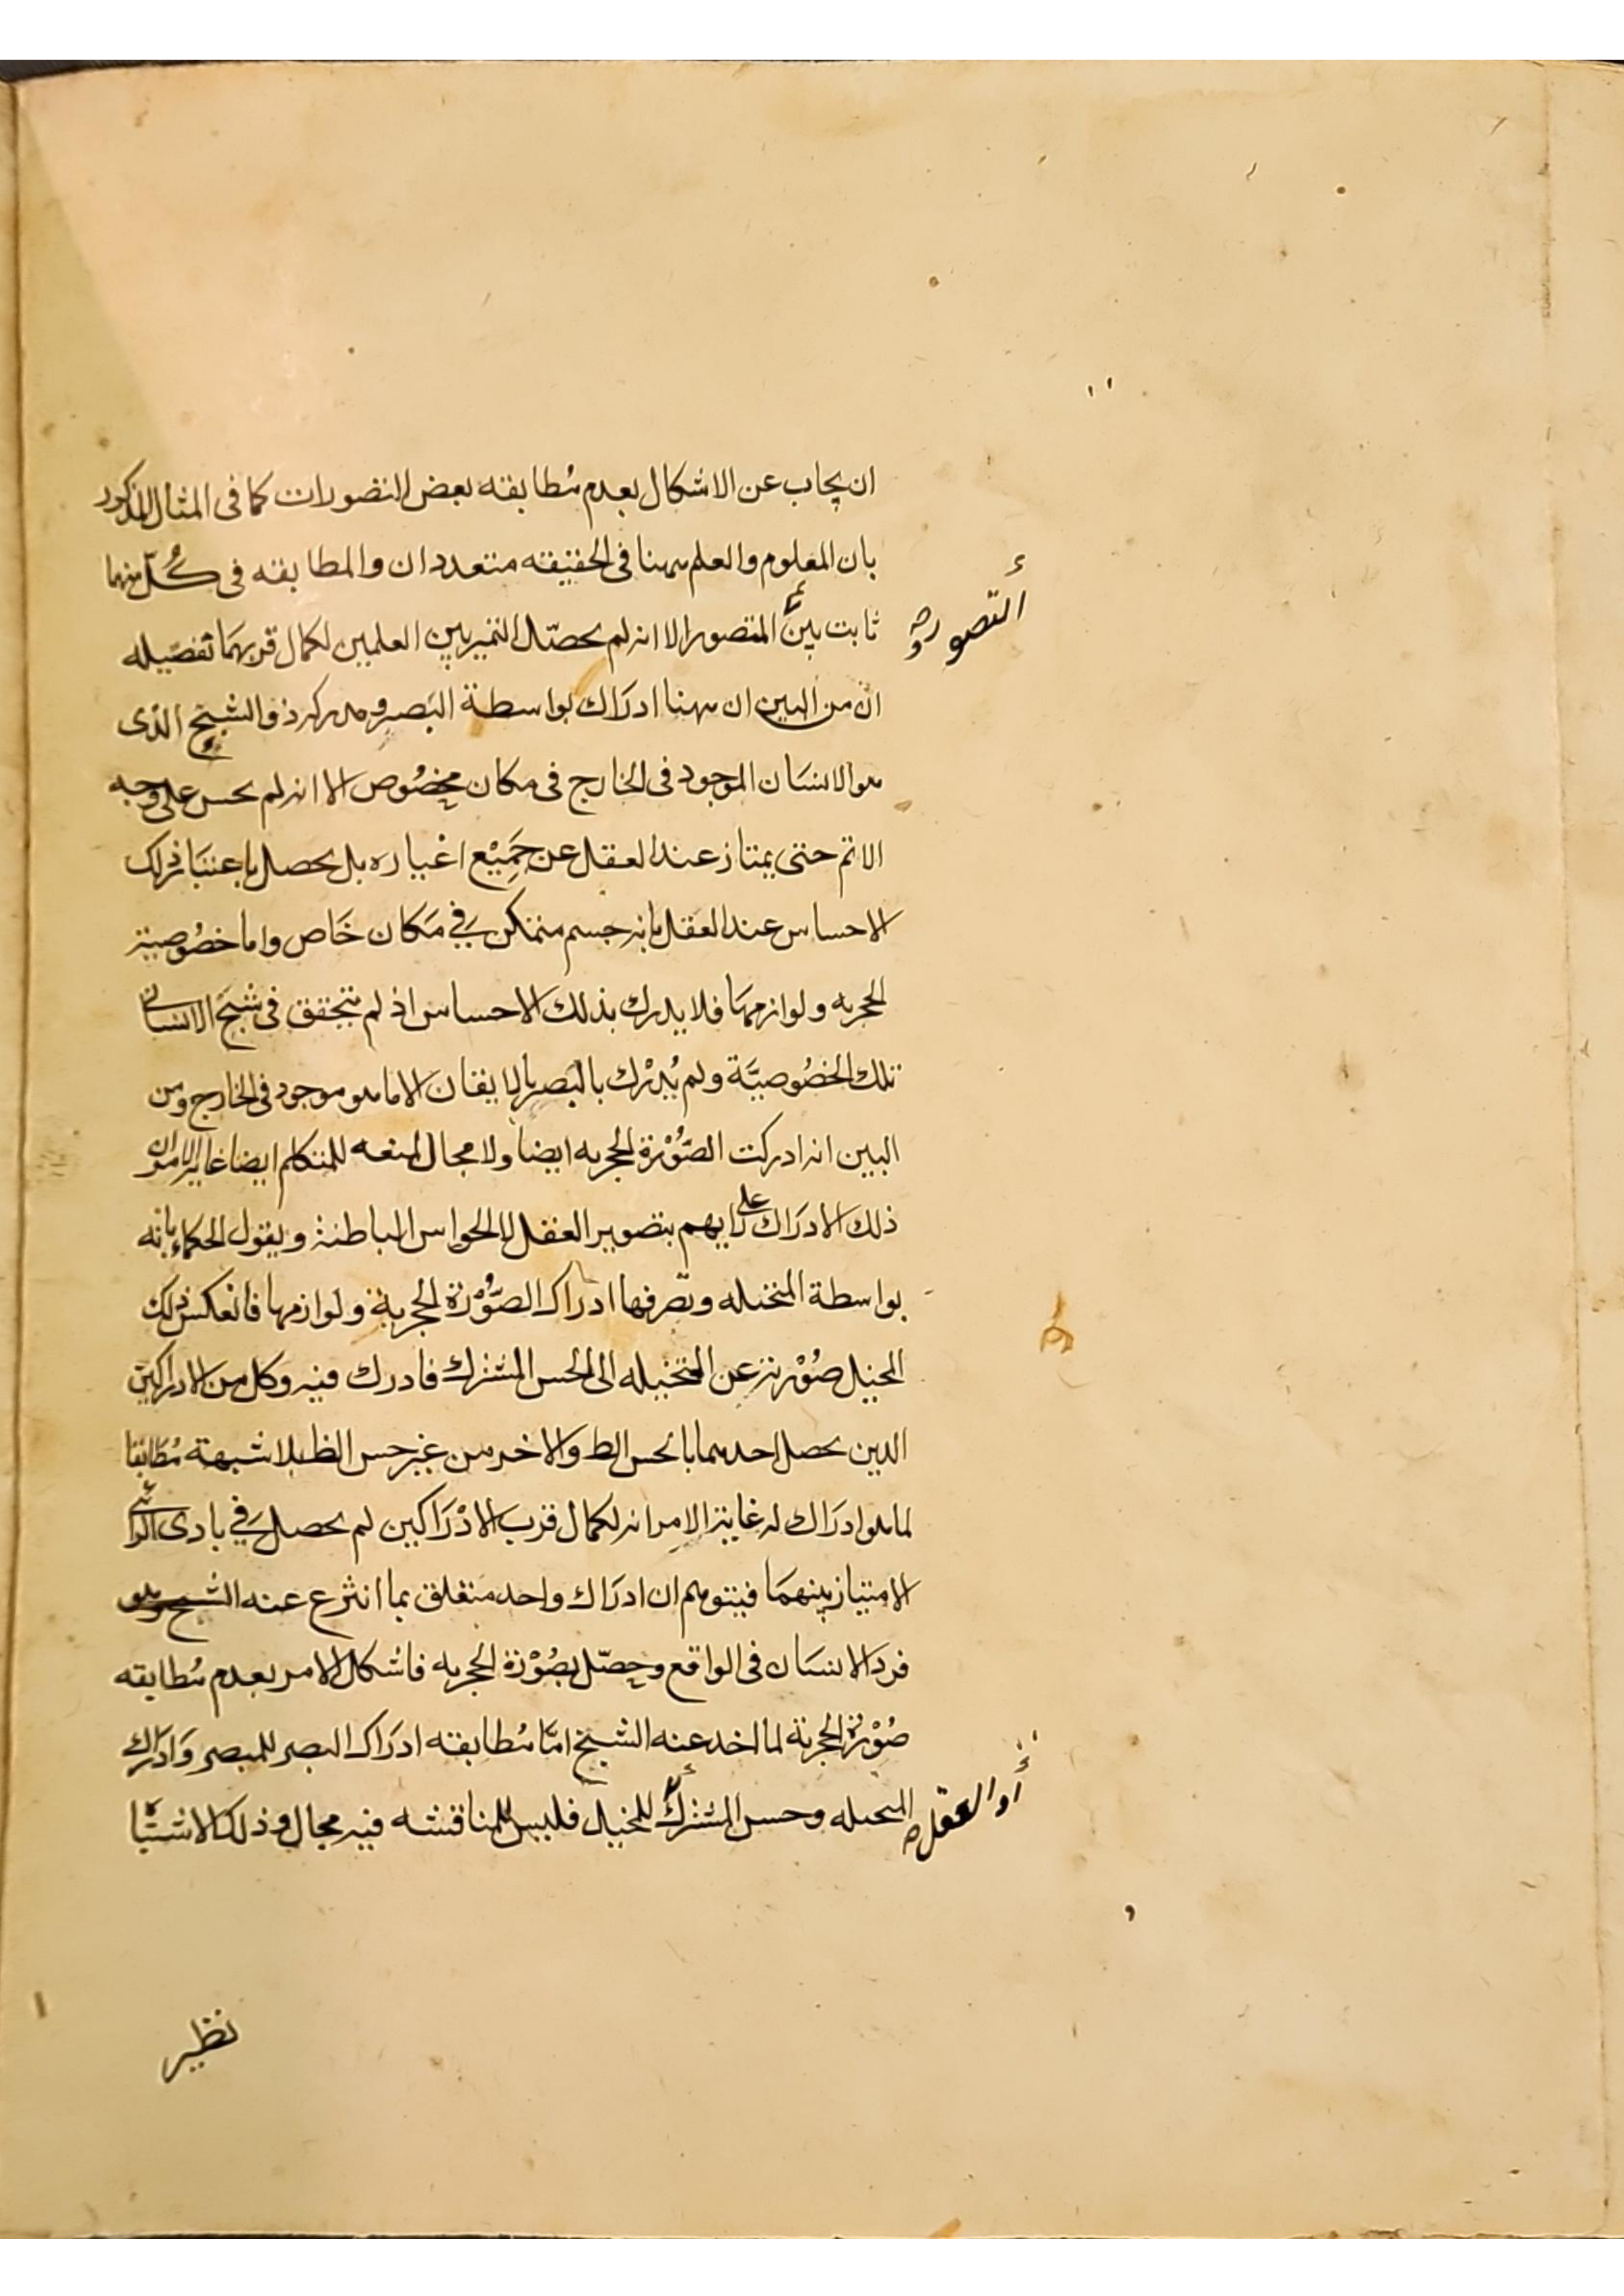 ان يجاب عن الاشكال بعدم مُطابقته بعض التصورات كما فى المثال المذكور
بان المعلوم والعلم ههنا فى الحقيقه متعددان والمطابقه فى كُلّ منهما
ثابت بين المتصور الا انه لم يحصّل التميز بين العلمين لكمال قربهمَا تفصَيله
التصور صح
انّ من البين ان ههنا ادرَاك بواسطة البَصر ومدركه ذو الشبح الذى
هو الانسَان الموجود فى الخارج فى مكان مخصُوص الا انه لم يحس على وجه
الاتم حتى يمتاز عند العقل عن جَمِيْع اغياره بل يحصل باعتبَار ذلك
الاحساس عند العقل بانه جسم متمكن فى مَكان خَاص واما خصُوصية
الحجريه ولوازمهَا فلا يدرك بذلك الاحساس اذ لم يتحقق فى شبحَ الانسَانى
تلك الخصُوصيَّة ولم يُدْرك بالبَصر بالايقان الا ما هو موجود فى الخارج ومن
البين انه ادركت الصُّوْرة الحجريه ايضا ولا مجال لمنعه للمتكلم ايضا غاية الامران
ذلك الادرَاك على رايهم بتصوير العقل لا الحواس الباطنة ويقول الحكماء بانه
بواسطة المتخيله وتصرفها ادراك الصُّوْرة الحجرية ولوازمها فانعكس ذلك
المخيل صُوْرته عن المتخيله الى الحس المشترك فادرك فيه وكل من الادراكين
الذين يحصل احدهما بالحس الظ والاخر من غير حس الظ بلا شبهة مُطابقا
لما هو ادرَاك له غاية الامر انه لكمال قرب الادْرَاكين لم يحصل فى بادى الرائى
الامتياز بينهمَا فيتوهم ان ادرَاك واحد متعلق بما انتزع عنه الشبح وهو
فرد الانسَان فى الواقع وحصّل بصُوْرة الحجريه فاشكل الامر بعدم مُطابقه
صُوْرة الحجرية لما اخذ عنه الشبح امّا مُطابقه ادرَاك البصر للمبصر وَادرَاك
المتخيله وحس المشترك للمخيل فليس للمناقشه فيه مجال وذلك الاشتبَا
أو العقل صح
نظير